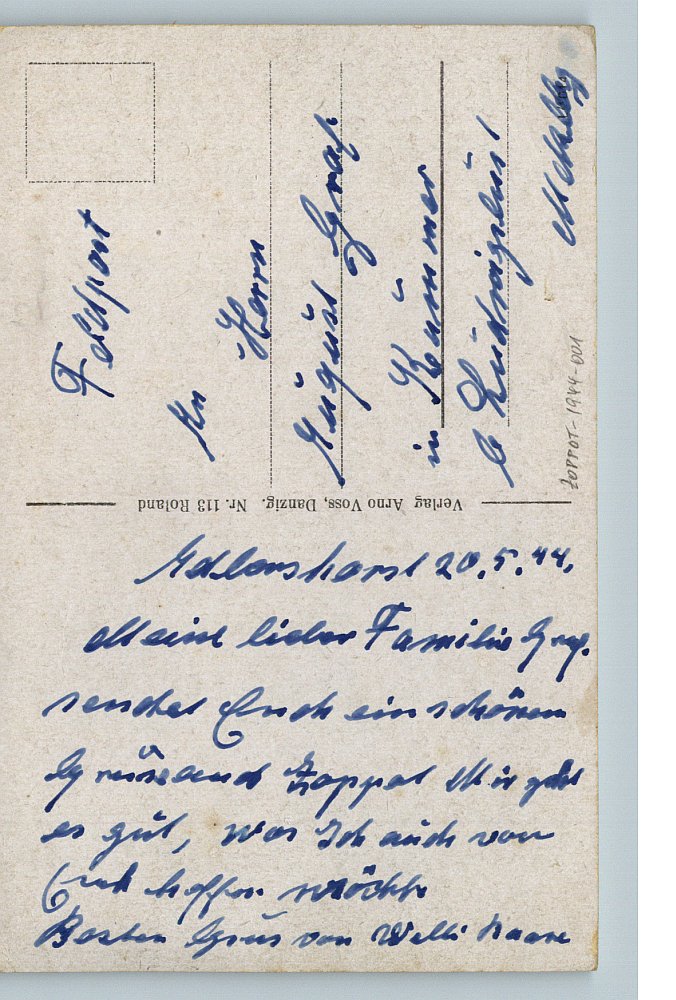 Feldpost
An
Herrn
August Graf
in Kummer
b Ludwigslust
Mcklbg
ZOPPOT-1944-001
Verlag Arno Voss, Danzig. Nr. 113 Roland
Adlershorst 20.5.44.
Meine lieber Familie Graf.
sendet Euch ein schönen
Gruss aus Zoppot Mir geht
es gut, was Ich auch von
Euch hoffen möchte
Besten Grus von Willi